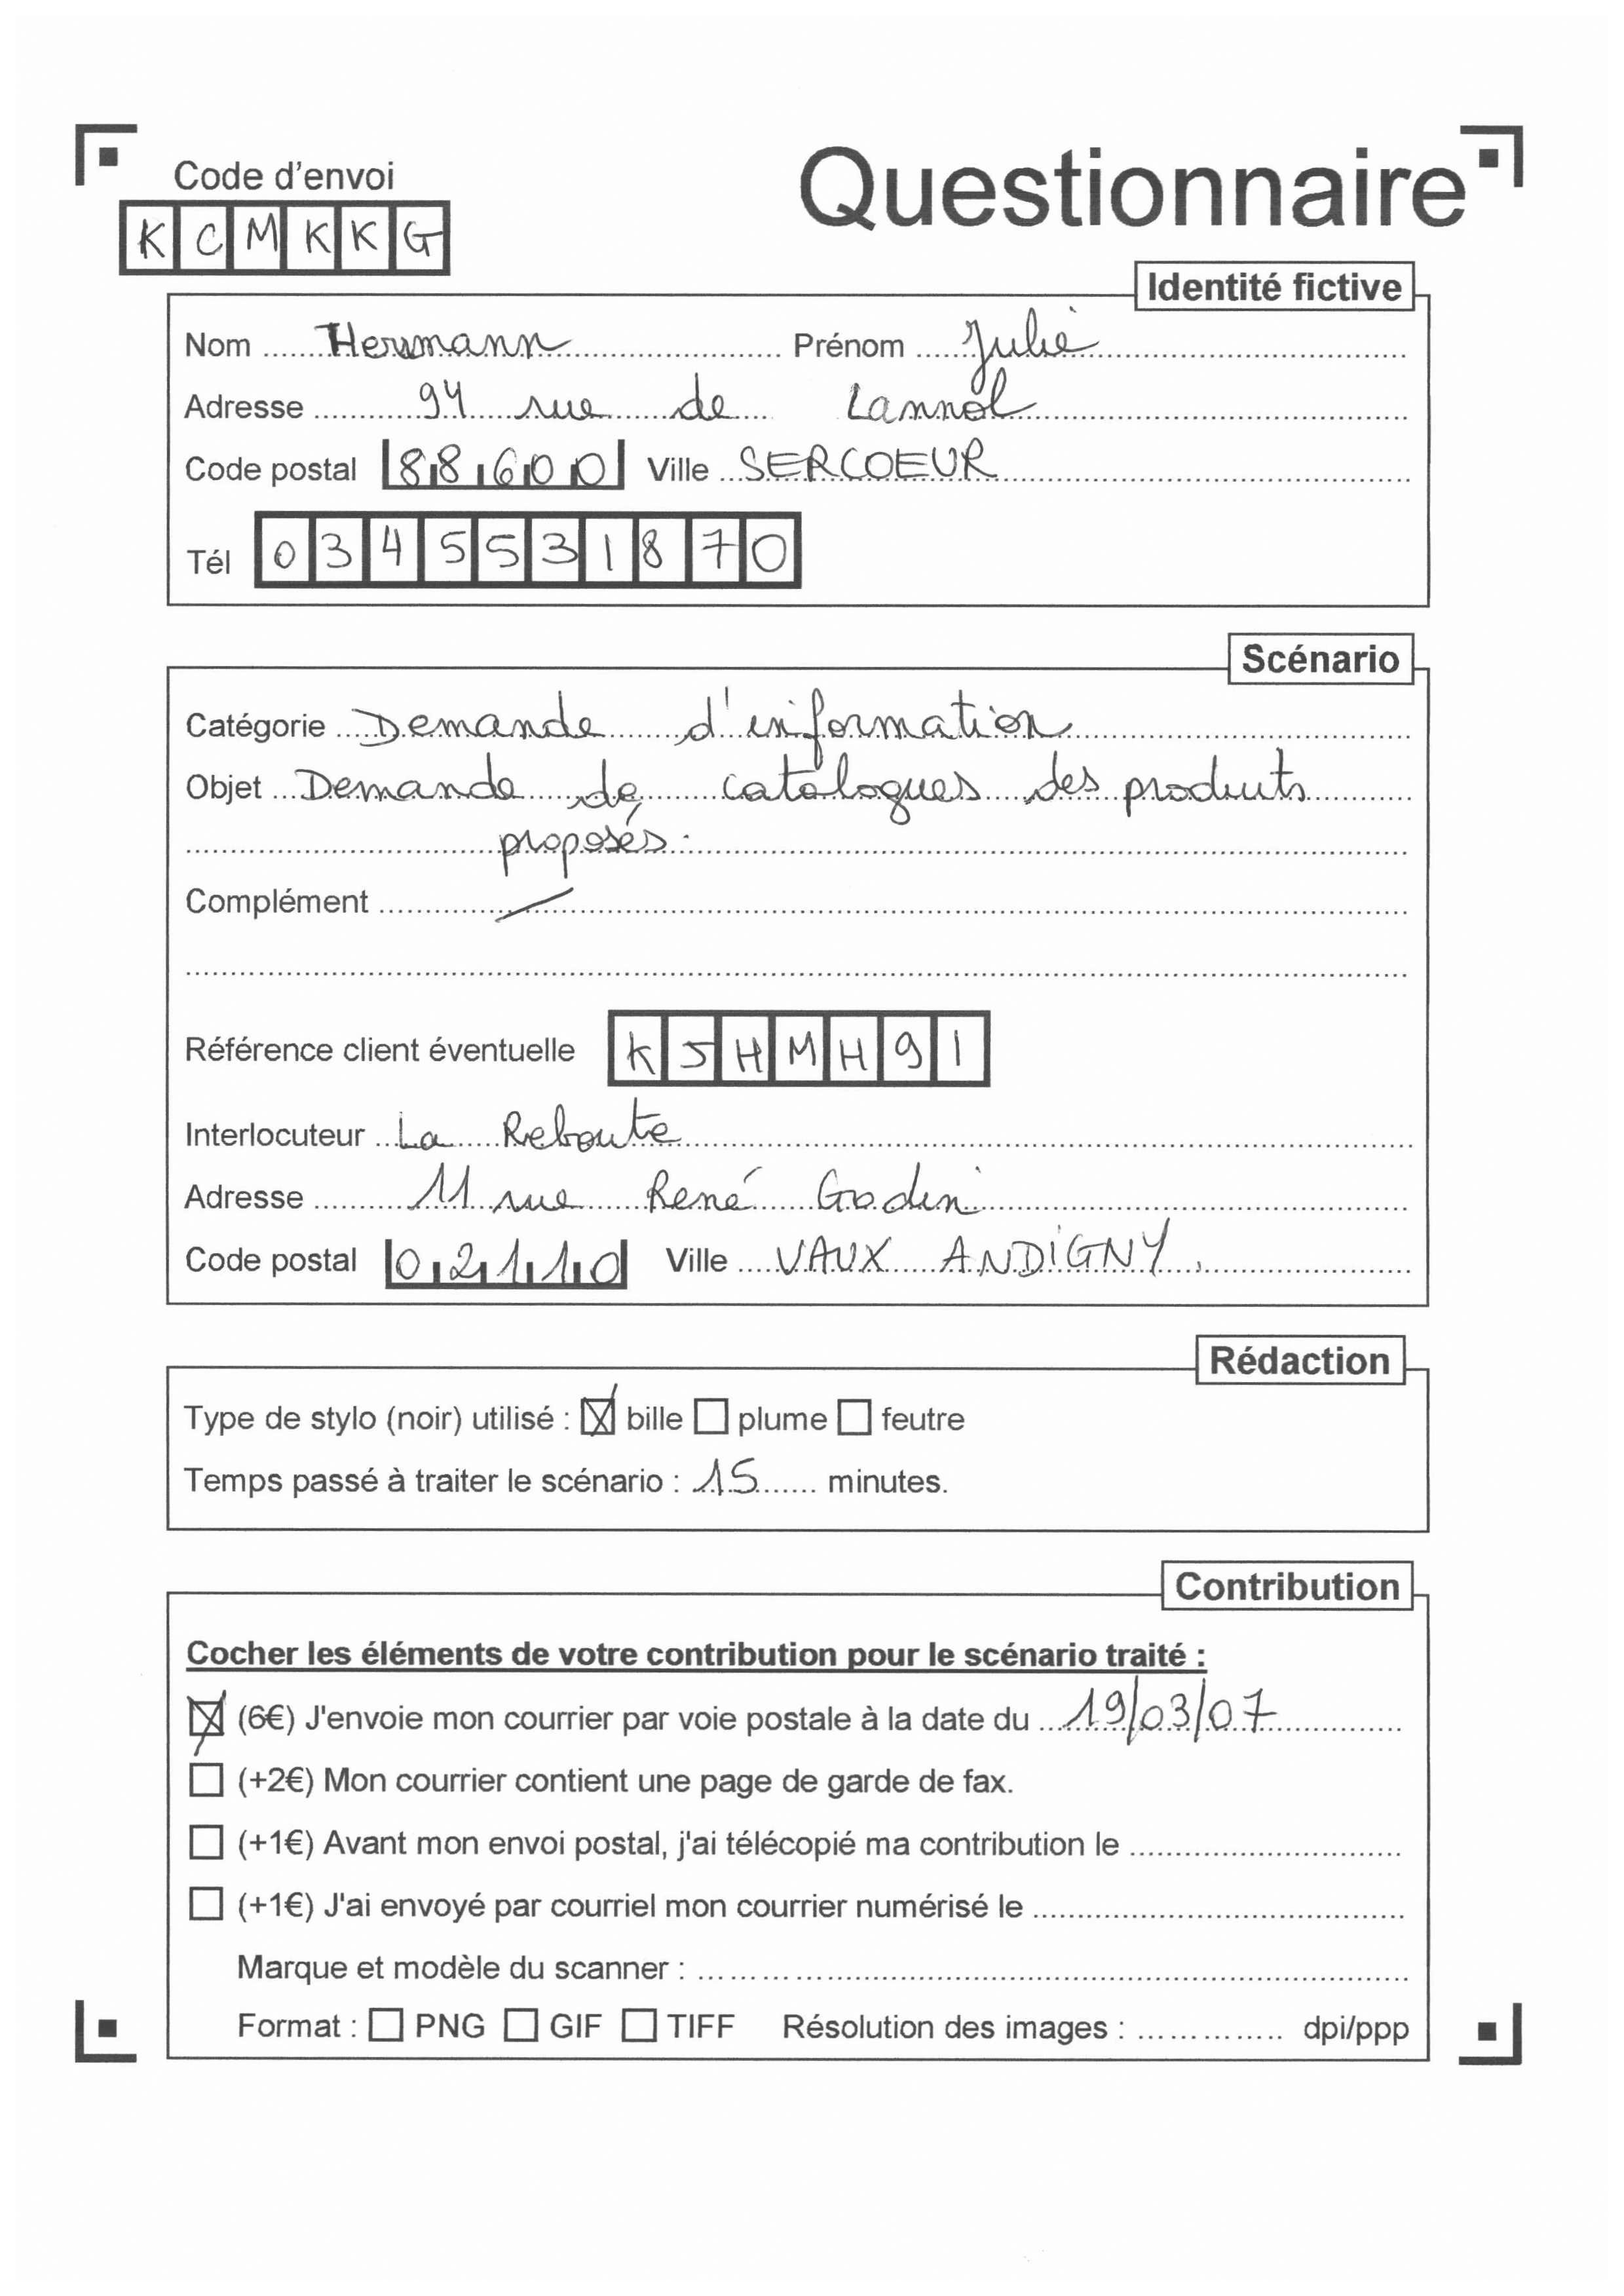 Code d'envoi
Questionnaire
KCMKKG
Identité fictive
Nom Hermann Prénom Julie
Adresse 94 rue de Lannol
Code postal 88600 Ville SERCOEUR
Tél 0345531870
Scénario
Catégorie Demande d'information
Objet Demande de catalogues des produits
proposés.
Complément /
Référence client éventuelle KJHMH91
Interlocuteur La Reboute
Adresse 11 rue René Godin
Code postal 02110 Ville VAUX ANDIGNY
Rédaction
Type de stylo (noir) utilisé : ☒ bille ☐ plume ☐ feutre
Temps passé à traiter le scénario : 15 minutes.
Contribution
Cocher les éléments de votre contribution pour le scénario traité :
☒ (6€) J'envoie mon courrier par voie postale à la date du 19/03/07
☐ (+2€) Mon courrier contient une page de garde de fax.
☐ (+1€) Avant mon envoi postal, j'ai télécopié ma contribution le
☐ (+1€) J'ai envoyé par courriel mon courrier numérisé le
Marque et modèle du scanner :
Format : ☐ PNG ☐ GIF ☐ TIFF Résolution des images : dpi/ppp